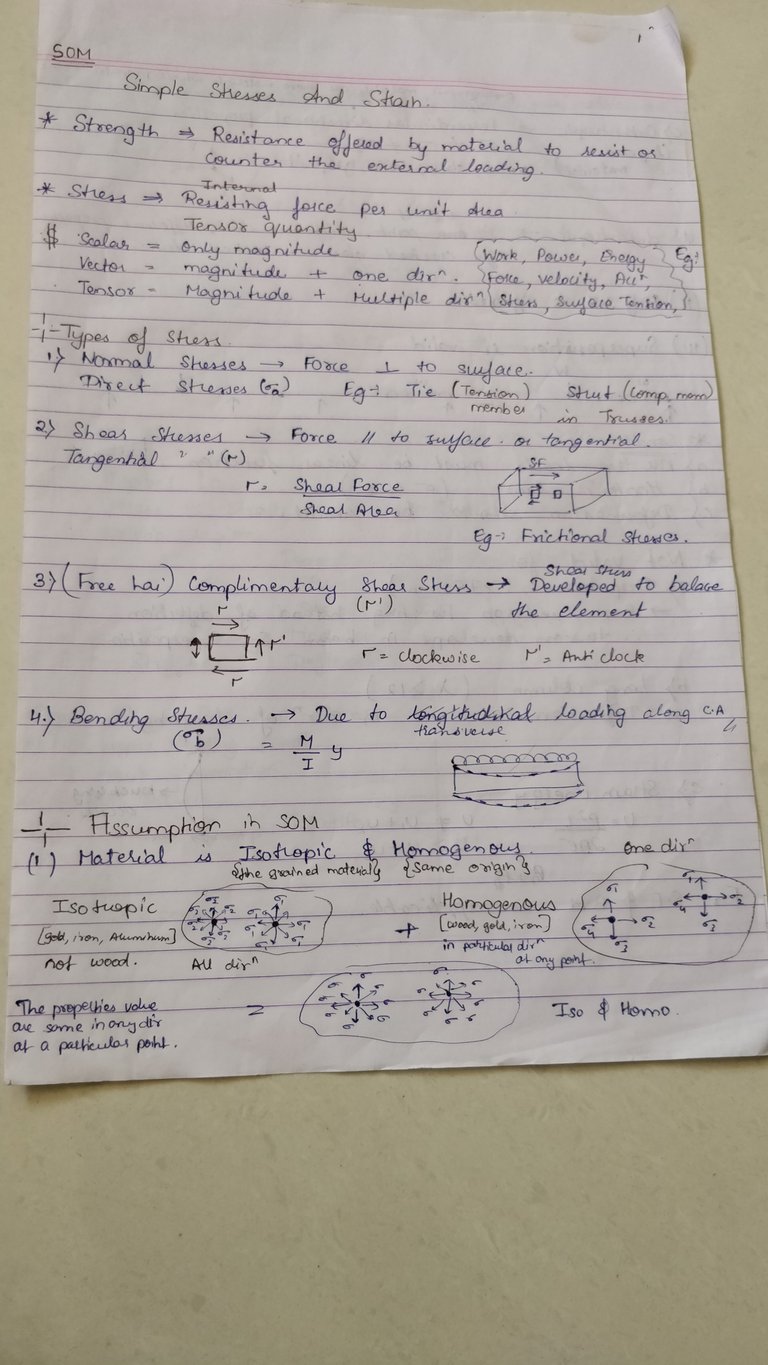 SOM
Simple Stresses And Strain.
* Strength ⇒ Resistance offered by material to resist or
counter the external loading.
* Stress ⇒ Internal Resisting force per unit Area
Tensor quantity
$ Scalar = only magnitude (Work, Power, Energy Eg:
Vector = magnitude + one dirⁿ. (Force, velocity, Accⁿ,
Tensor = Magnitude + Multiple dirⁿ (Stress, Surface Tension,
Types of Stress.
1) Normal Stresses → Force ⊥ to surface.
Direct Stresses (σa) Eg:- Tie (Tension) member Strut (Comp. mem)
in Trusses.
2) Shear Stresses → Force // to surface. or tangential.
Tangential " " (τ)
τ = Shear Force
Shear Area
SF
Eg:- Frictional Stresses.
3) (Free hai) Complimentary Shear Stress → Shear Stress Developed to balace
(τ') the element
τ
τ'
τ
τ = clockwise τ' = Anti clock
4.) Bending Stresses. → Due to transverse loading along C.A
(σb) = M/I y
Assumption in SOM
(1) Material is Isotropic & Homogenous.
{the grained material} {Same origin}
One dirⁿ
Isotropic
[gold, iron, Aluminum]
not wood.
All dirⁿ
+
Homogenous
[wood, gold, iron]
in particular dirⁿ
at any point.
σ1 σ2 σ3 σ4
The properties value
are same in any dir
at a particular point.
=
σ σ σ σ
Iso & Homo.